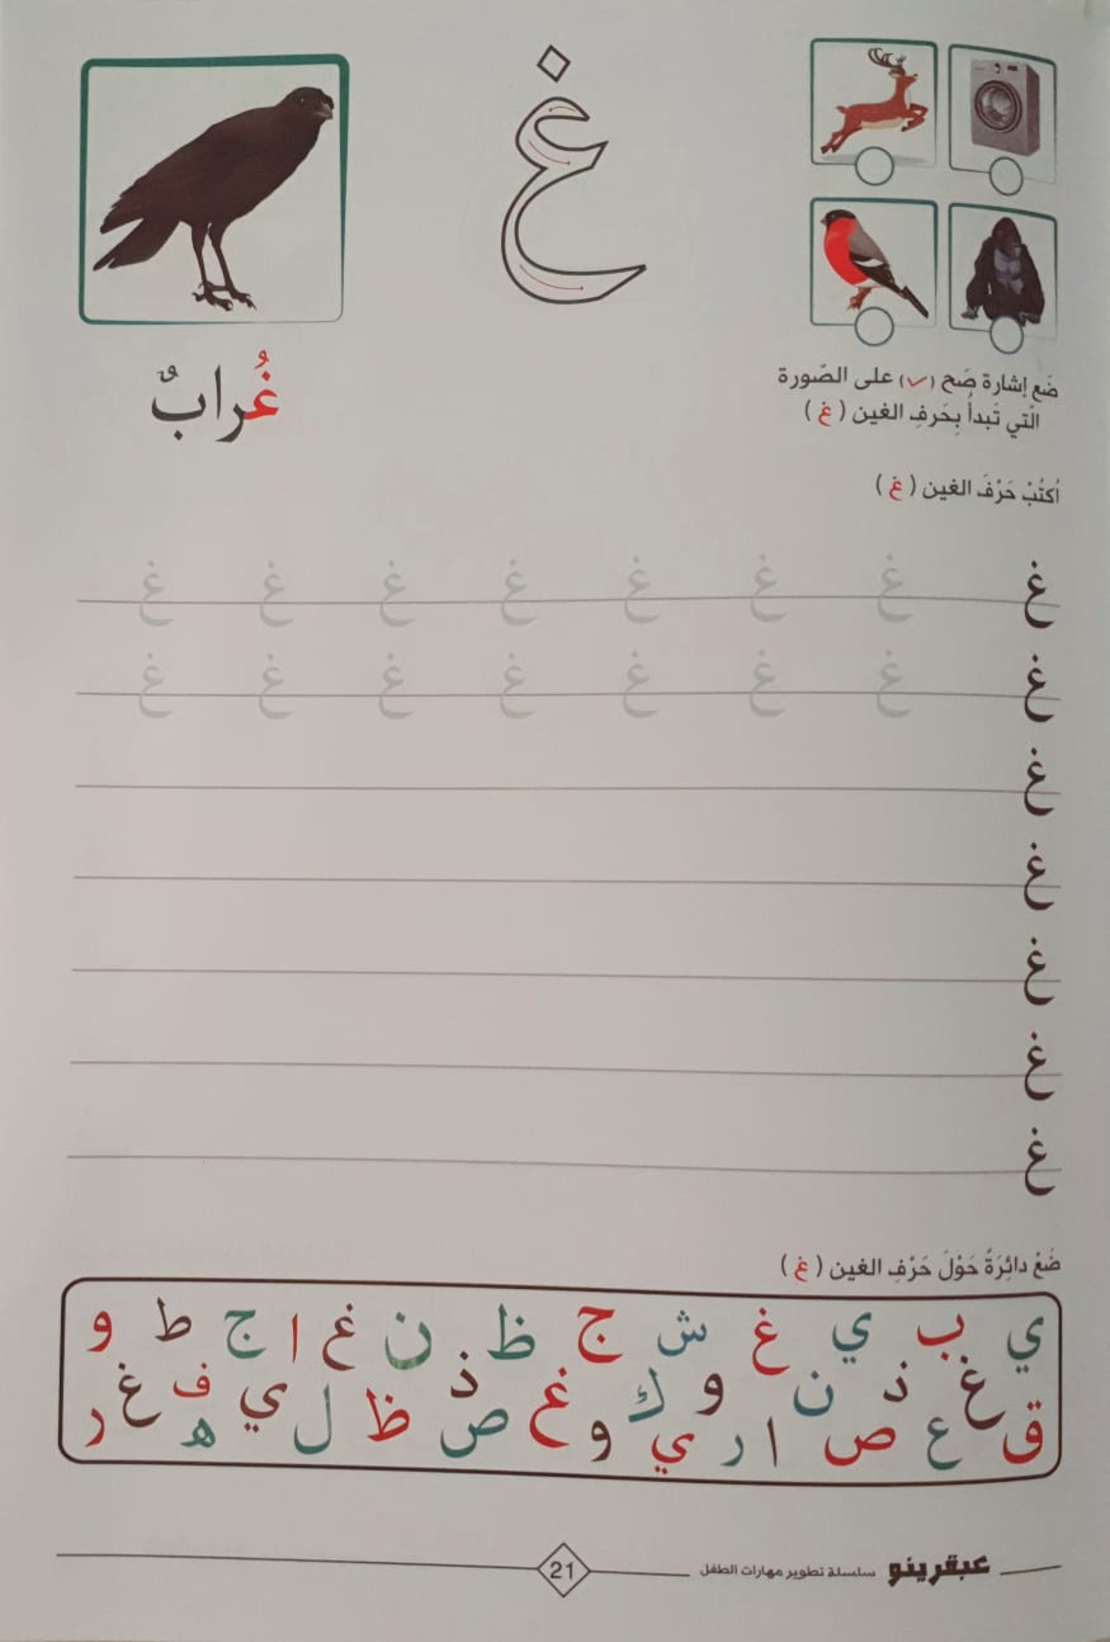 غ
غُرابٌ
ضَع إشارة صَح (✓) على الصّورة
الّتي تَبدأُ بِحَرفِ الغين (غ)
اُكتُبْ حَرْفَ الغين (غ)
غ غ غ غ غ غ غ غ
غ غ غ غ غ غ غ غ
غ
غ
غ
غ
غ
ضَعْ دائِرَةً حَوْلَ حَرْفِ الغين (غ)
ي ب ي غ ش ج ظ ن غ ا ج ط و
غ ذ ن و ك غ ذ ظ ل ي ف غ
ق ع ص ا ر ي و ص ه ر
عبقرينو سلسلة تطوير مهارات الطفل 21